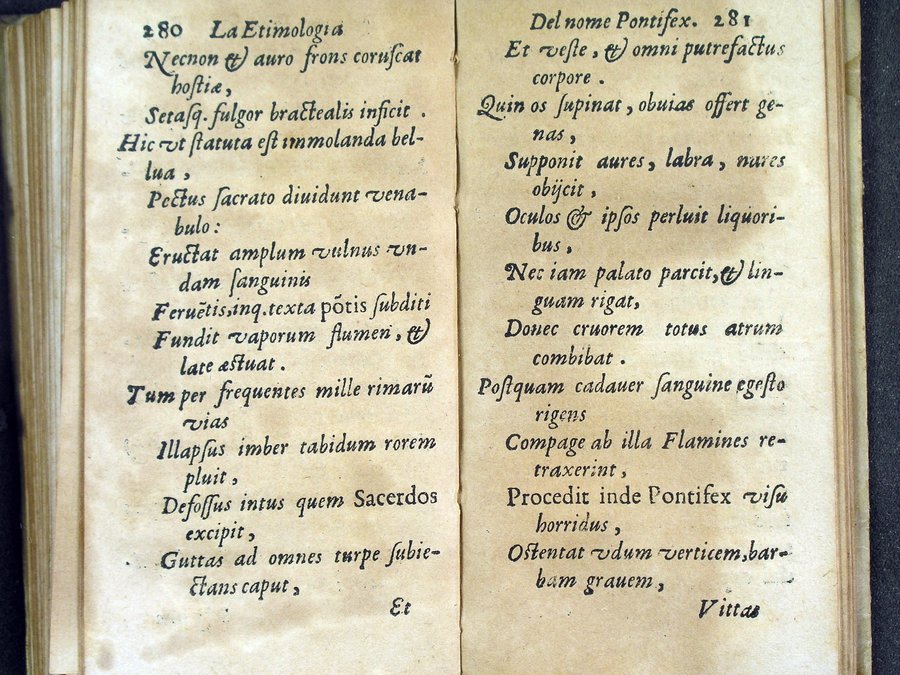 280 La Etimologia
Necnon & auro frons coruſcat
hoſtiæ,
Setaſq. fulgor bractealis inficit .
Hic vt ſtatuta eſt immolanda bel-
lua ,
Pectus ſacrato diuidunt vena-
bulo :
Eructat amplum vulnus vn-
dam ſanguinis
Feruẽtis,inq.texta põtis ſubditi
Fundit vaporum flumen , &
late æſtuat .
Tum per frequentes mille rimarũ
vias
Illapſus imber tabidum rorem
pluit ,
Defoſſus intus quem Sacerdos
excipit ,
Guttas ad omnes turpe ſubie-
ctans caput ,
Et
Del nome Pontifex. 281
Et veſte , & omni putrefactus
corpore .
Quin os ſupinat , obuias offert ge-
nas ,
Supponit aures , labra , nares
obijcit ,
Oculos & ipſos perluit liquori-
bus ,
Nec iam palato parcit,& lin-
guam rigat,
Donec cruorem totus atrum
combibat .
Poſtquam cadauer ſanguine egeſto
rigens
Compage ab illa Flamines re-
traxerint ,
Procedit inde Pontifex viſu
horridus ,
Oſtentat vdum verticem,bar-
bam grauem ,
Vittas